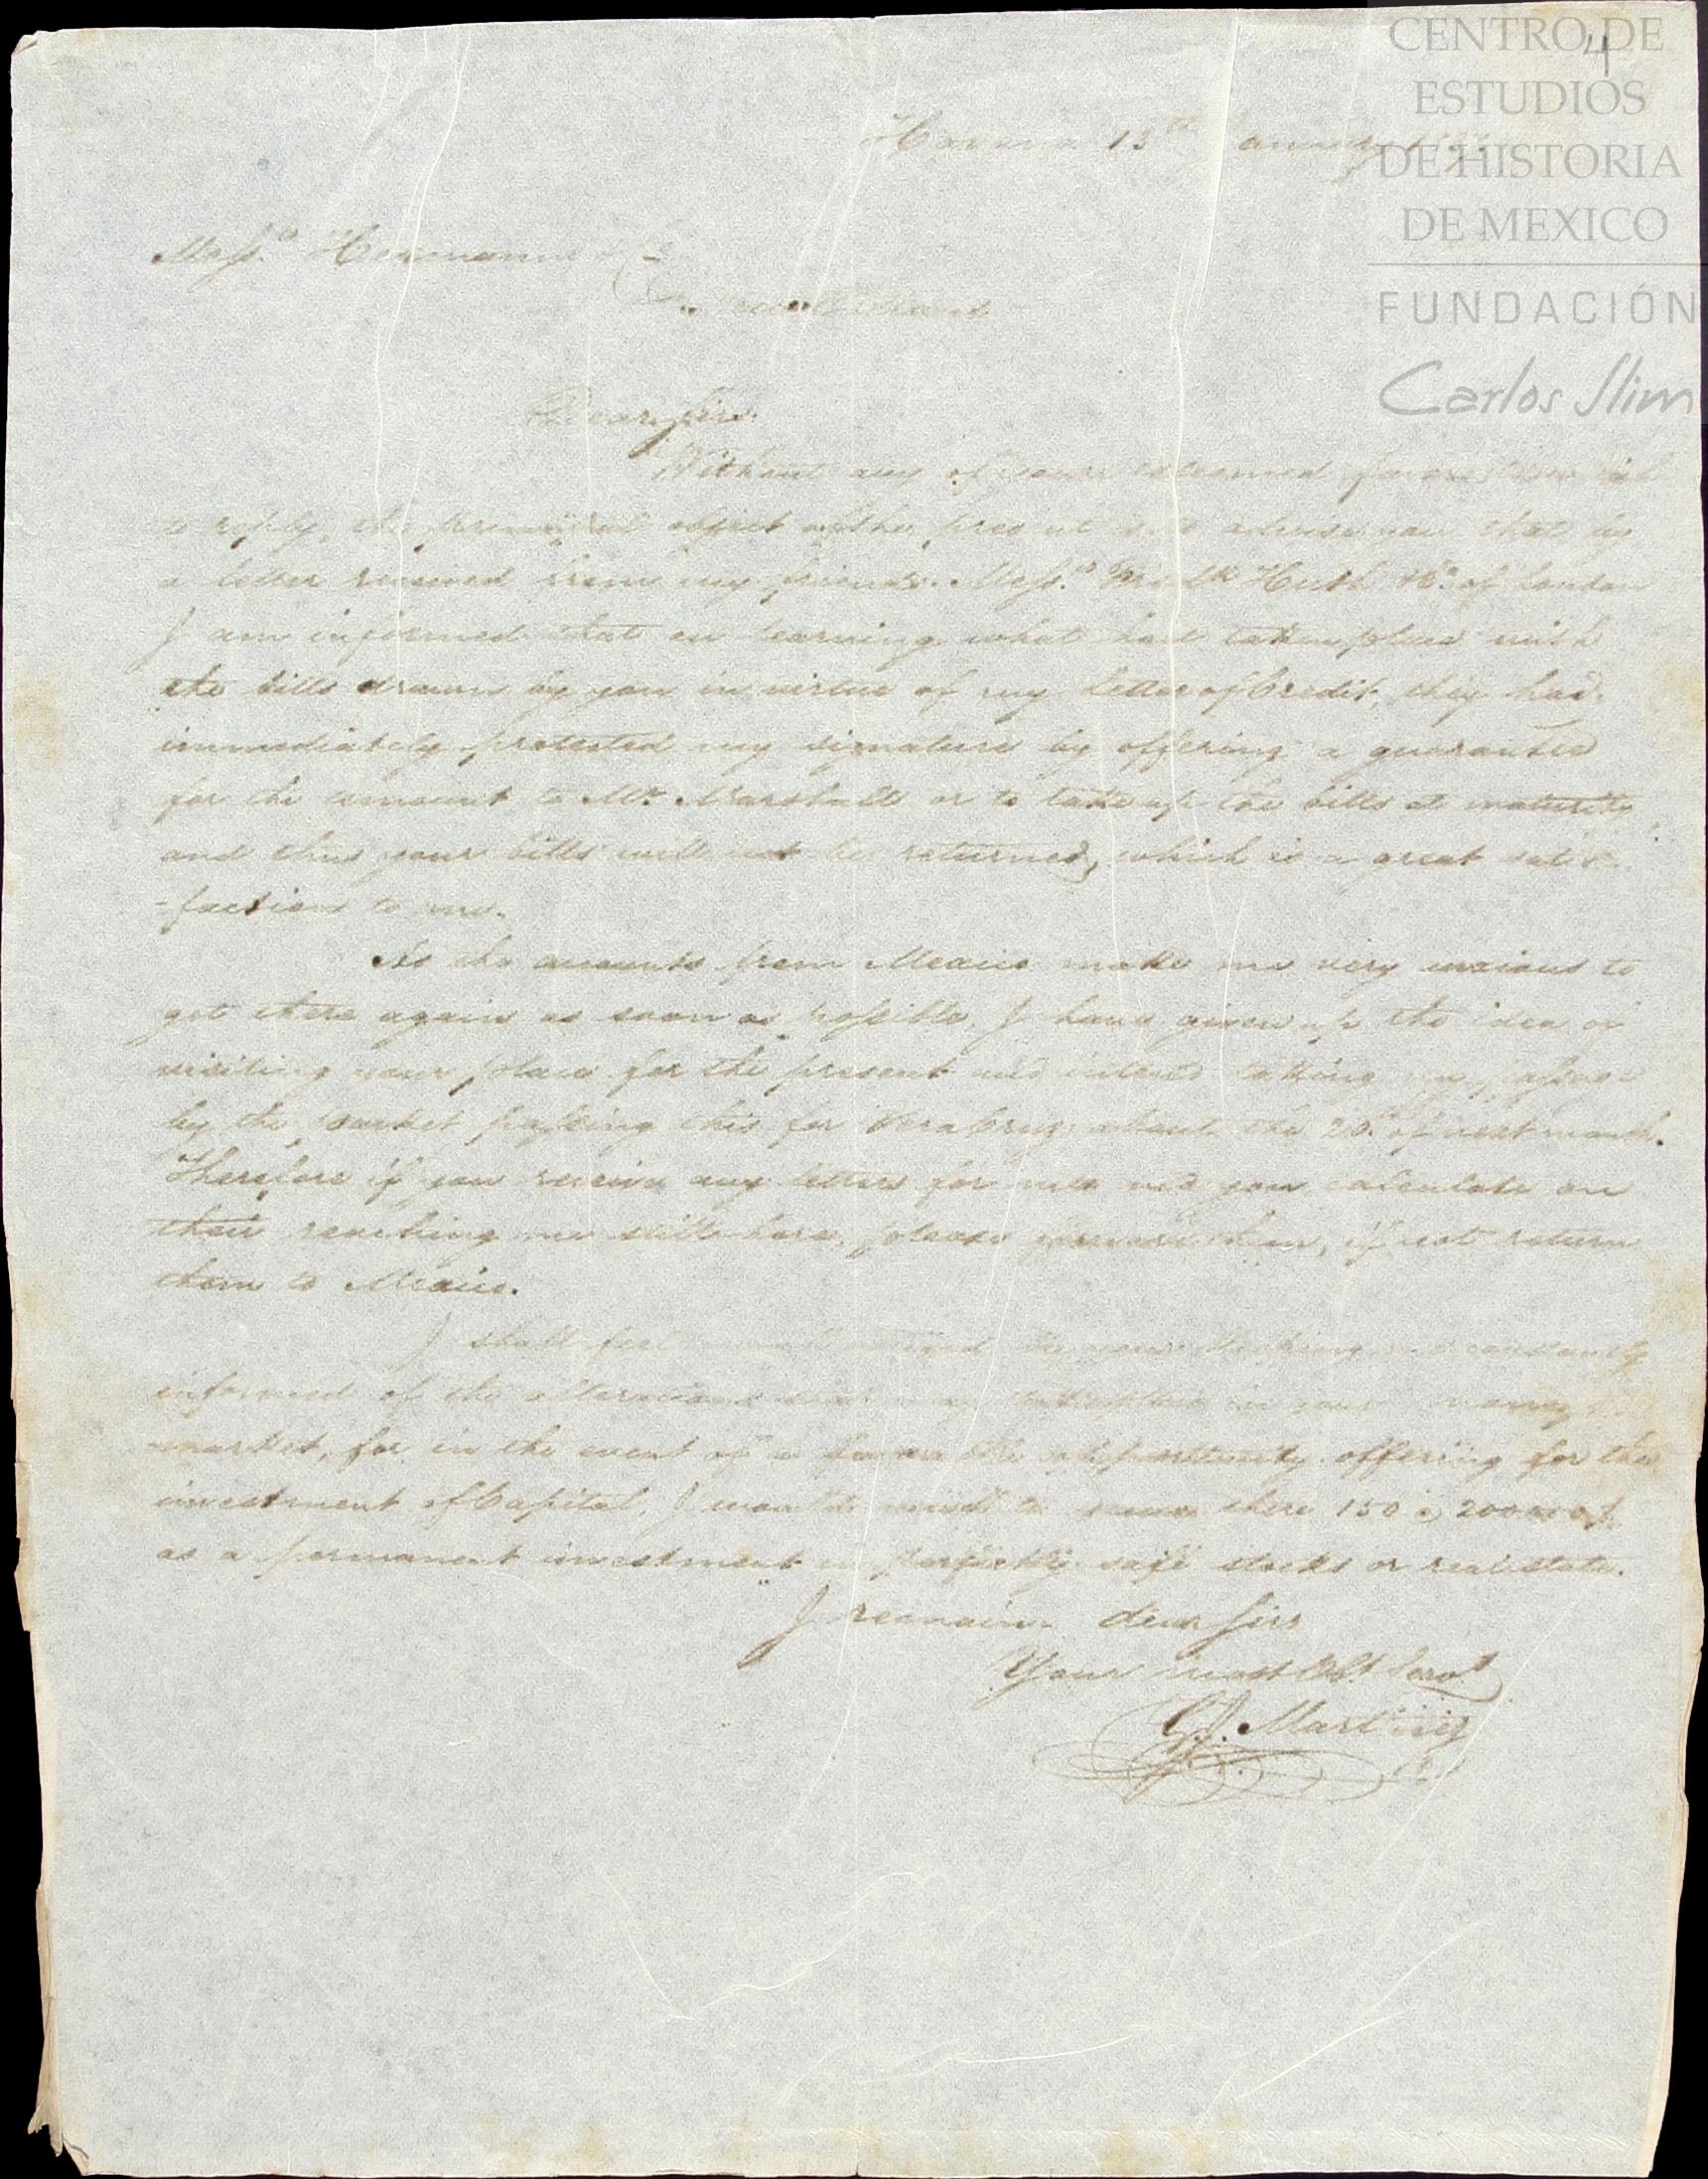 CENTRO DE
ESTUDIOS
DE HISTORIA
DE MEXICO
FUNDACIÓN
Carlos Slim
4
Havana 13th January
Messrs Hermann & Co
Dear Sirs
Without any of your esteemed favors
to reply, the principal object of the present is to advise you that by
a letter received from my friends Messrs Fredk Huth & Co. of London
I am informed that on learning what had taken place with
the bills drawn by you in virtue of my Letter of Credit, they had
immediately protected my signature by offering a guarantee
for the amount to Mr. Marshall or to take up the bills at maturity
and thus your bills will not be returned, which is a great satis
-faction to me.
As the accounts from Mexico make me very anxious to
get there again as soon as possible, I have given up the idea of
visiting your place for the present and intend taking my passage
by the packet passing this for Vera Cruz about the 20th of next month.
Therefore if you receive any letters for me and you calculate on
their reaching me still here, please forward them, if not return
them to Mexico.
I shall feel much obliged by your keeping me constantly
informed of the alterations that may take place in your money
market, for in the event of a favorable opportunity offering for the
investment of Capital, I would wish to there 150 a 200000$
as a permanent investment in perfectly safe stocks or real state.
I remain dear Sirs
Your most Obt. Servt
G. J. Martinez